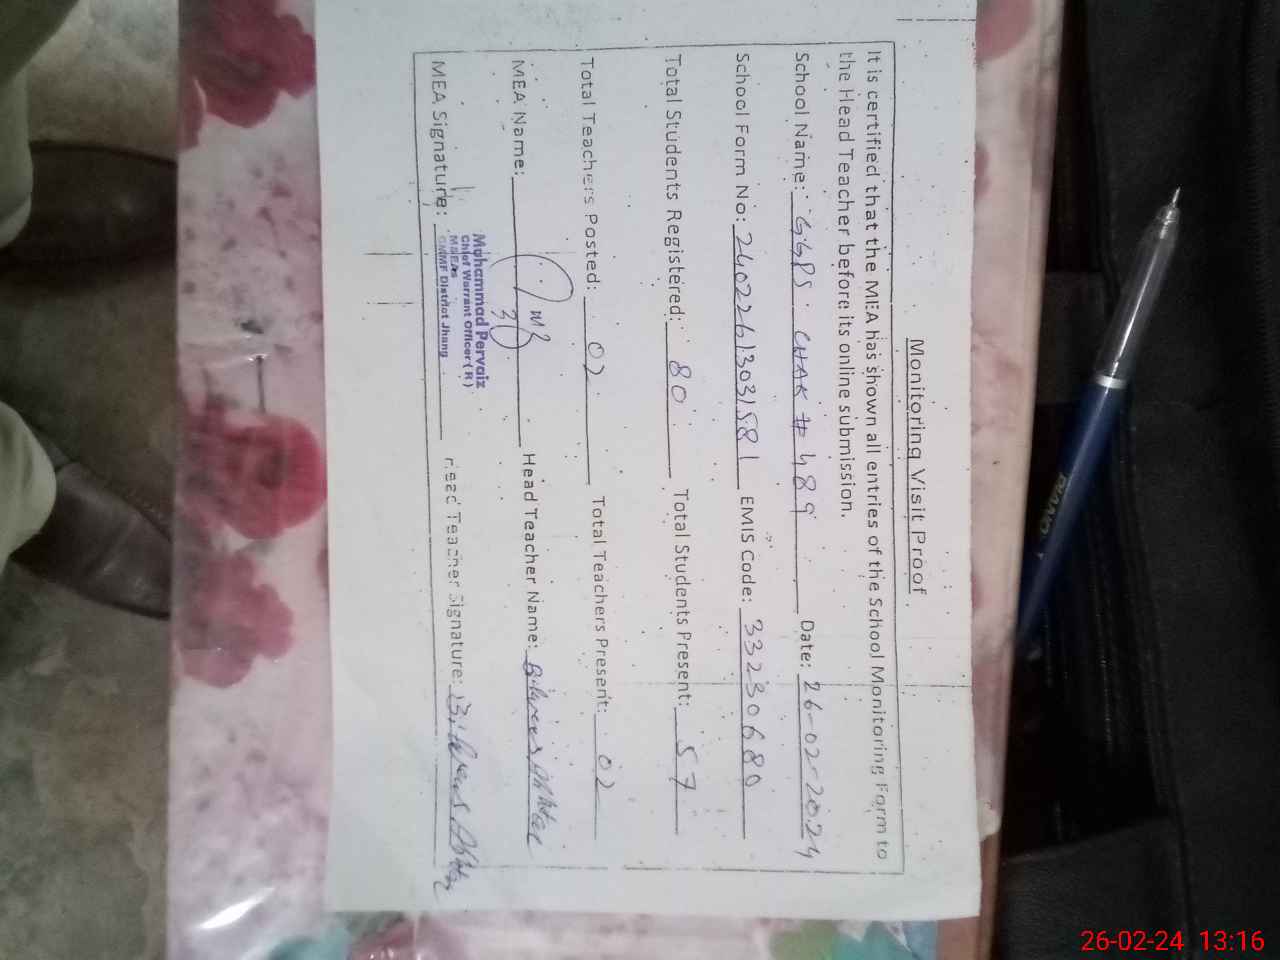 Monitoring Visit Proof
It is certified that the MEA has shown all entries of the School Monitoring Form to
the Head Teacher before its online submission.
School Name: GGPS CHAK # 489 Date: 26-02-2024
School Form No: 24022613031581 EMIS Code: 33230680
Total Students Registered: 80 Total Students Present: 57
Total Teachers Posted: 02 Total Teachers Present: 02
MEA Name: Head Teacher Name: Akhtar
Mohammad Pervaiz
Chief Warrant Officer (R)
MSEAs
CMMF District Jhang
MEA Signature: Head Teacher Signature: Akhtar
DIANO
26-02-24 13:16